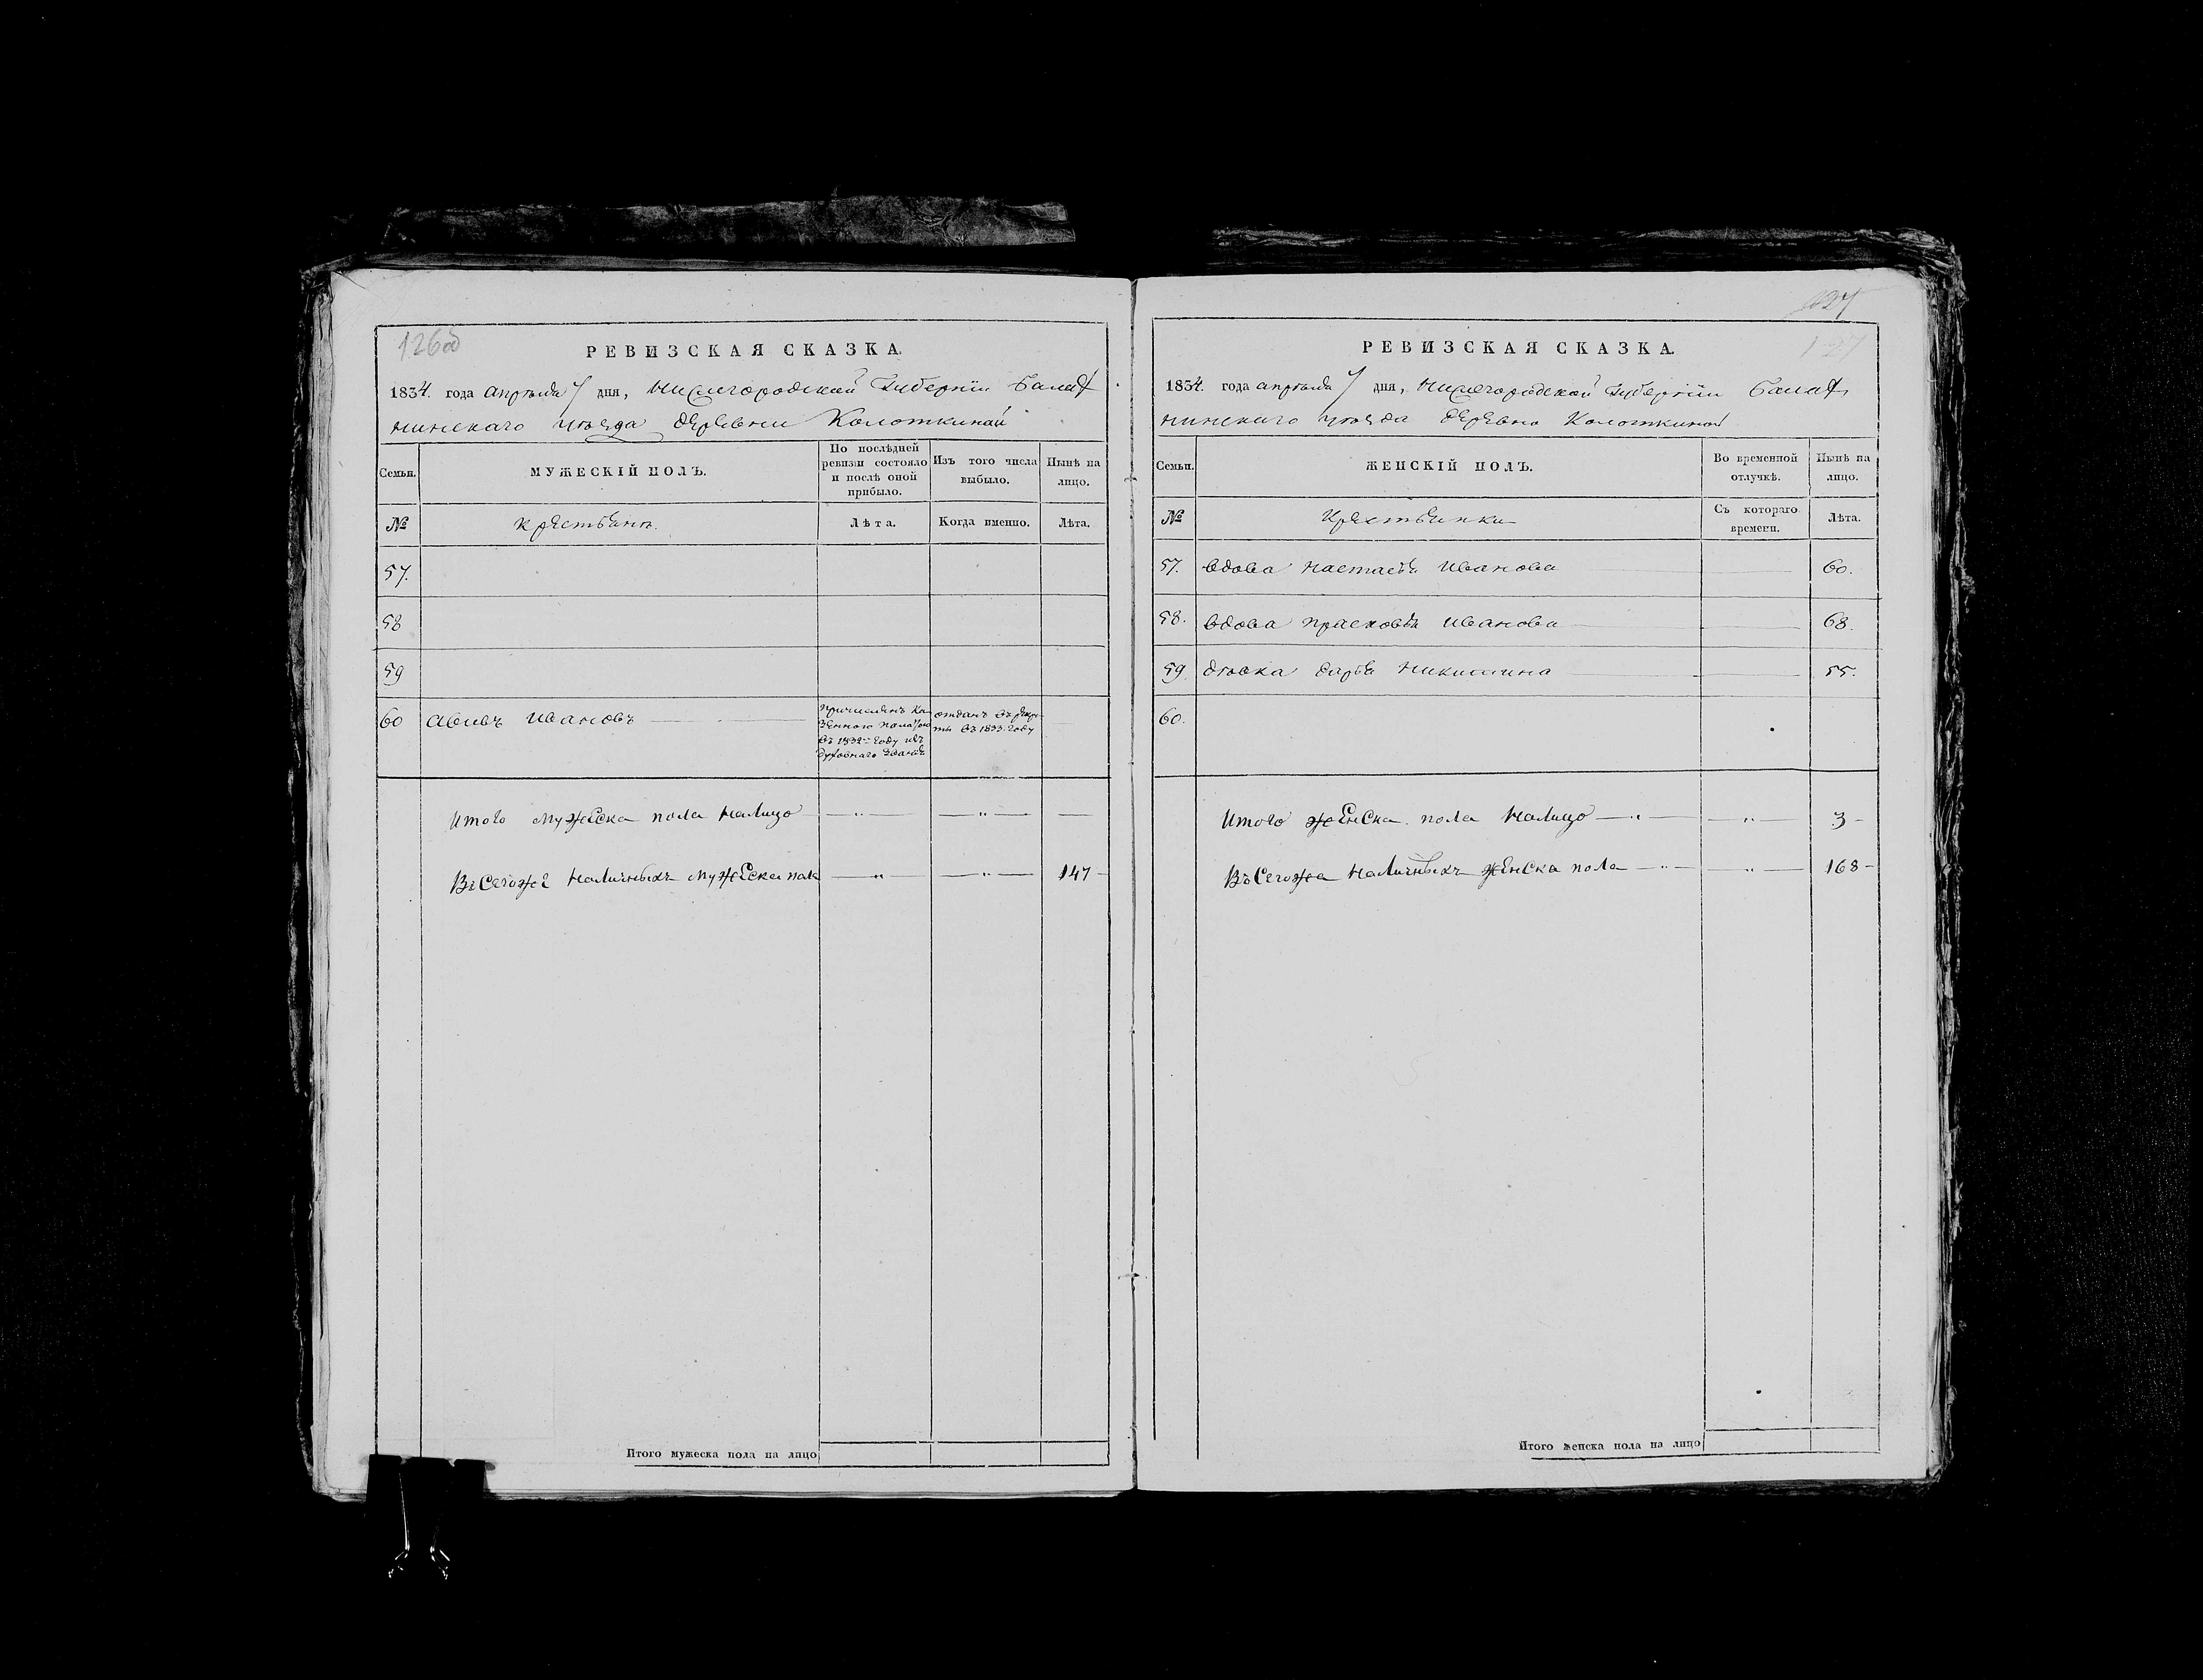 126об
РЕВИЗСКАЯ СКАЗКА.
1834. года апрѣля 7 дня, Нижегородской Губерніи Балах
нинскаго уѣзда деревни Колоткиной
Семьи. МУЖЕСКІЙ ПОЛЪ. По послѣдней ревизіи состояло и послѣ оной прибыло. Изъ того числа выбыло. Нынѣ на лицо.
№ крестьянъ. Лѣта. Когда именно. Лѣта.
57.
58
59
60 Авивъ Ивановъ причисленъ Ка
зенною палатою
въ 1832 году изъ
духовнаго званія
отданъ въ рекру
ты въ 1833 году
Итого мужеска пола налицо
Всегоже наличныхъ мужеска пола 147
Итого мужеска пола на лицо
127
127
РЕВИЗСКАЯ СКАЗКА.
1834. года апрѣля 7 дня, Нижегородской Губерніи Балах
нинскаго уѣзда деревни Колоткиной
Семьи. ЖЕНСКІЙ ПОЛЪ. Во временной отлучкѣ. Нынѣ на лицо.
№ Крестьянки Съ котораго времени. Лѣта.
57. вдова Настасья Иванова 60.
58. вдова Прасковья Иванова 68.
59 дѣвка Дарья Никитина 55.
60.
Итого женска пола налицо 3
Въсегоже наличныхъ женска пола 168
Итого женска пола на лицо